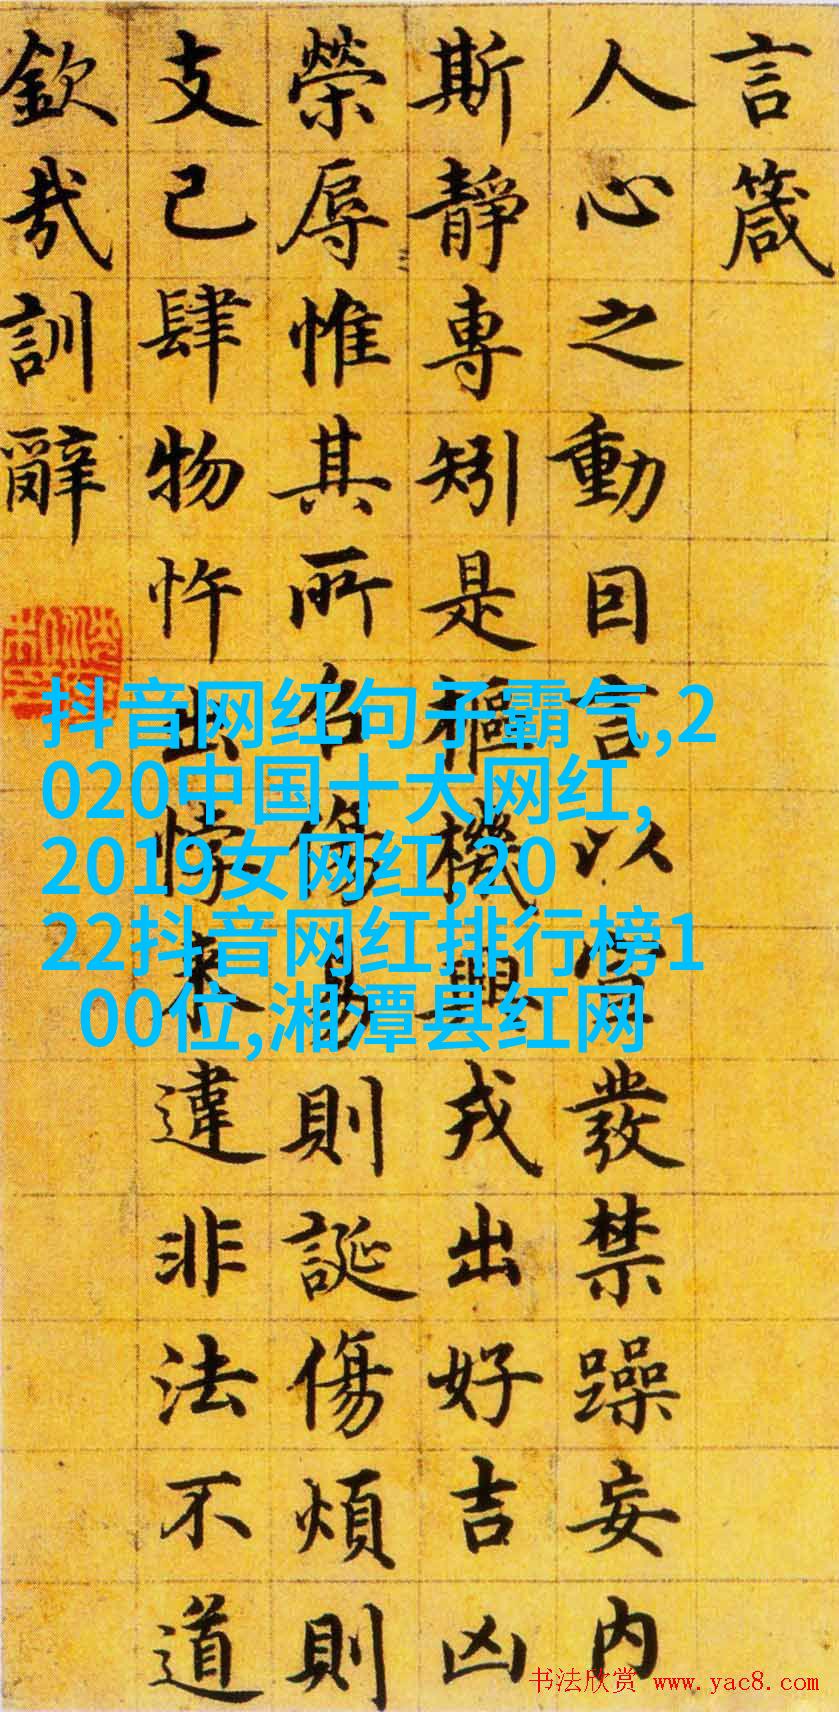 言箴
人心之動囙言以宣發禁躁妄内
斯靜專矧是樞機興戎出好吉凶
榮辱惟其所召傷易則誕傷煩則
支己肆物忤出悖來違非法不道
欽哉訓辭
抖音网红句子霸气,2
020中国十大网红,
2019女网红,20
22抖音网红排行榜1
00位,湘潭县红网
书法欣赏 www.yac8.com